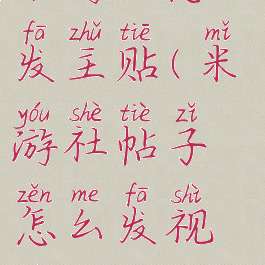 fā zhǔ tiē mǐ
发主贴(米
yóu shè tiè zǐ
游社帖子
zěn me fā shì
怎么发视